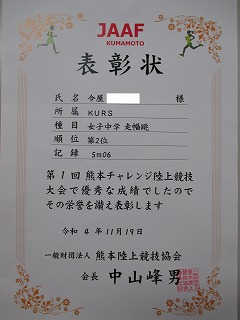 JAAF
KUMAMOTO
表彰状
氏名 今屋 様
所属 KURS
種目 女子中学 走幅跳
順位 第2位
記録 5m06
第1回 熊本チャレンジ陸上競技
大会で優秀な成績でしたので
その栄誉を讃え表彰します
令和4年11月19日
一般財団法人 熊本陸上競技協会
会長 中山峰男